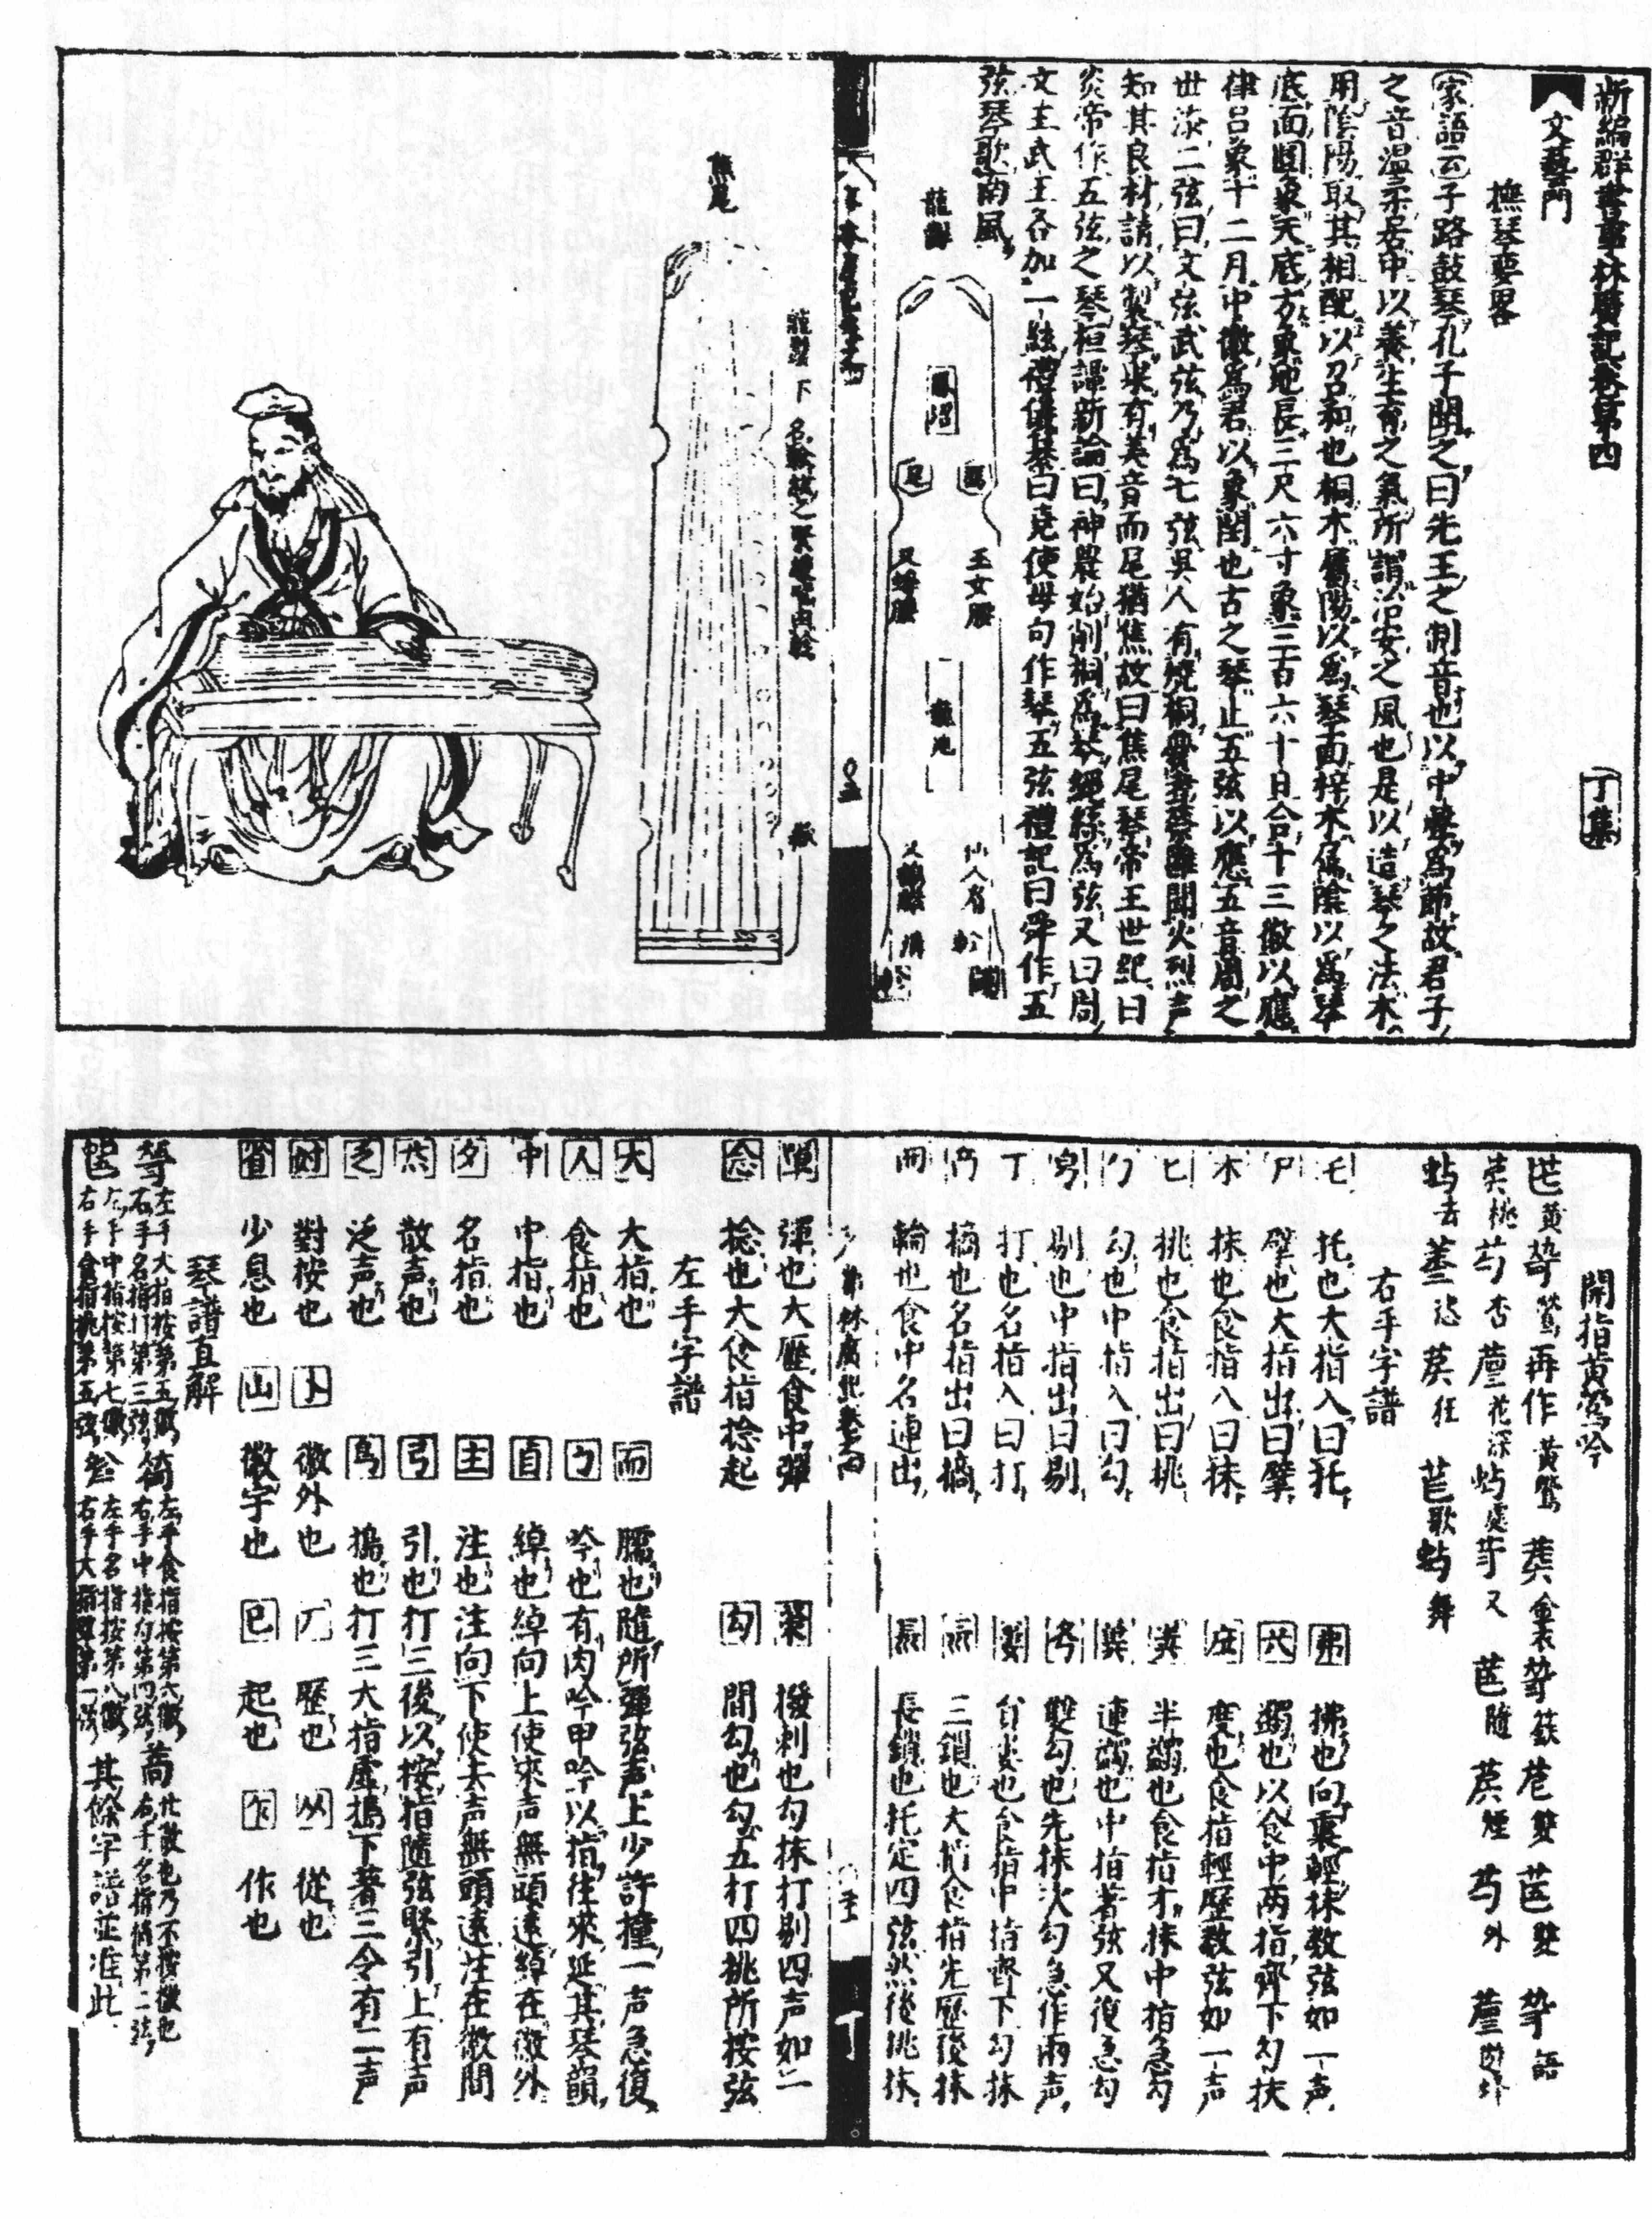 新編群書事林廣記卷第四 丁集
文藝門
撫琴要畧
家語云子路鼓琴孔子聞之曰先王之制音也以中聲爲節故君子
之音溫柔居中以養生育之氣所謂治安之風也是以造琴之法木
用陰陽取其相配以召和也桐木屬陽以爲琴面梓木屬陰以爲琴
底面圓象天底方象地長三尺六寸象三百六十日合十三徽以應
律呂象十二月中徽爲君以象閏也古之琴止五弦以應五音周之
世添二弦曰文弦武弦乃爲七弦吳人有燒桐爨者蔡邕聞火烈声
知其良材請以製琴果有美音而尾猶焦故曰焦尾琴帝王世紀曰
炎帝作五弦之琴桓譚新論曰神農始削桐爲琴繩絲爲弦又曰周
文王武王各加一絃禮儀纂曰堯使母句作琴五弦禮記曰舜作五
弦琴歌南風
龍齦
鳳沼
足
玉女腰
又蜂腰
龍池
仙人肩
焦尾
龍齦下
徽
開指黃鶯吟
黃鶯再作黃鶯金衣簇雙雙語
桃杏花深處又隨煙外遊絆
去恣狂歌舞
右手字譜
乇 托也大指入曰托 弗 拂也向裏輕抹数弦如一声
尸 擘也大指出曰擘 蠲也以食中两指齊下勾抹
木 抹也食指入曰抹 度也食指輕歷数弦如一声
乚 挑也食指出曰挑 半蠲也食指才抹中指急勾
勹 勾也中指入曰勾 連蠲也中指著弦又復急勾
剔也中指出曰剔 雙勾也先抹次勾急作兩声
丁 打也名指入曰打 食指中指齊下勾抹
摘也名指出曰摘 三鎖也大指食指先歷後抹
輪也食中名連出 長鎖也托定四弦然後挑抹
彈也大歷食中彈 撥剌也勾抹打剔四声如二
捻也大食指捻起 間勾也勾五打四挑所按弦
左手字譜
大 大指也 而 臑也隨所彈弦声上少許撞一声急復
人 食指也 吟也有肉吟甲吟以指往來延其琴韻
中 中指也 綽也綽向上使來声無頭遠綽在徽外
夕 名指也 主 注也注向下使去声無頭遠注在徽間
散声也 弓 引也打三後以按指隨弦緊引上有声
泛声也 搗也打三大指虛搗下著三令有二声
對按也 卜 徽外也 厂 歷也 从 從也
省 少息也 山 徽字也 巳 起也 乍 作也
琴譜直解
左手大指按第五徽右手名指打第三弦 左手食指按第六徽右手中指勾第四弦 此散也乃不按徽也右手名指摘第二弦
左手中指按第七徽右手食指挑第五弦 左手名指按第八徽右手大指擘第一弦 其餘字譜並准此